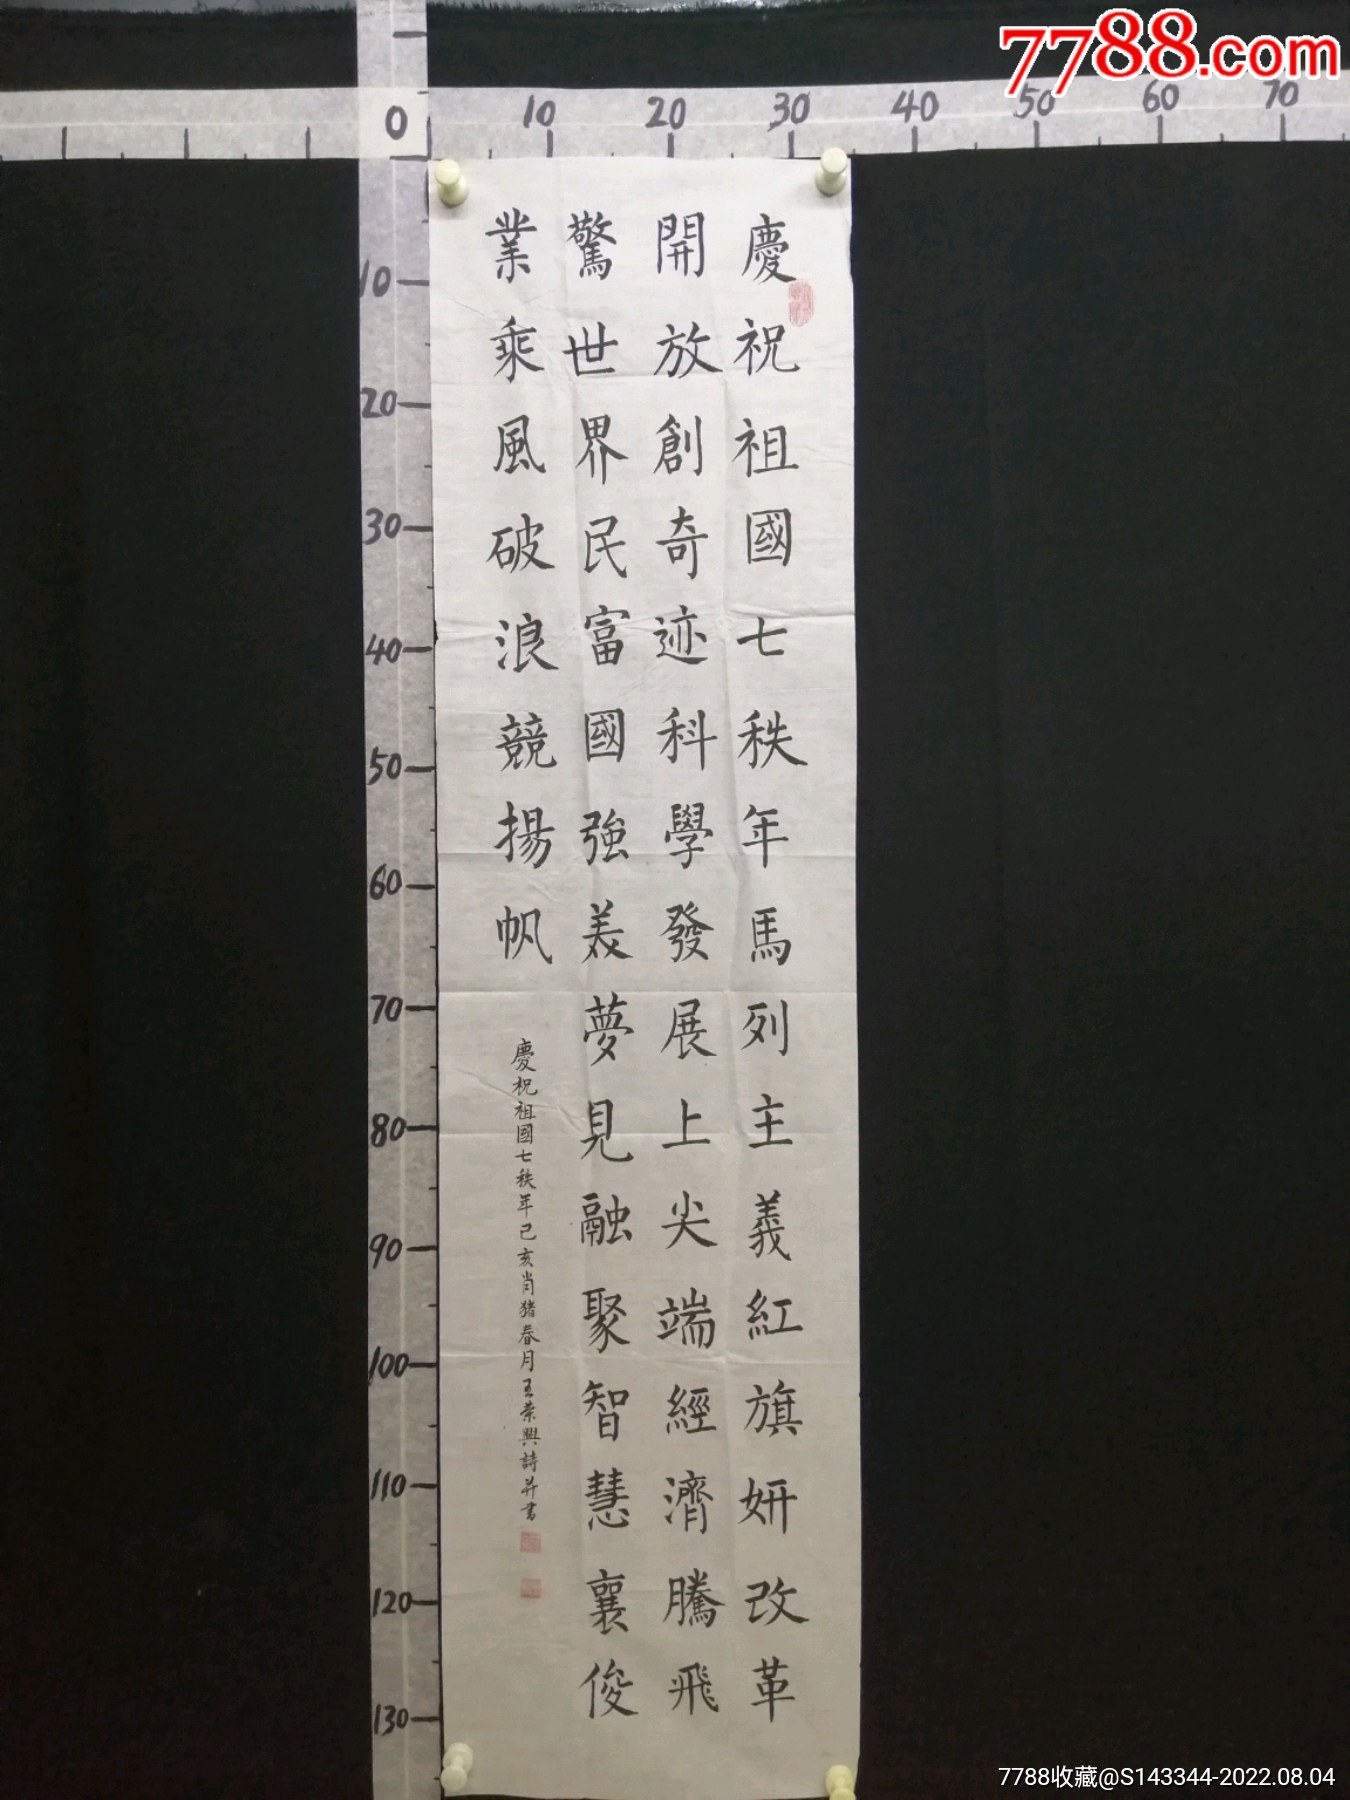 7788.com
0 10 20 30 40 50 60 70
10
20
30
40
50
60
70
80
90
100
110
120
130
慶祝祖國七秩年馬列主義紅旗妍改革
開放創奇迹科學發展上尖端經濟騰飛
驚世界民富國強美夢見融聚智慧襄俊
業乘風破浪競揚帆
慶祝祖国七秩年己亥肖猪春月王荣興詩并書
7788收藏@S143344-2022.08.04